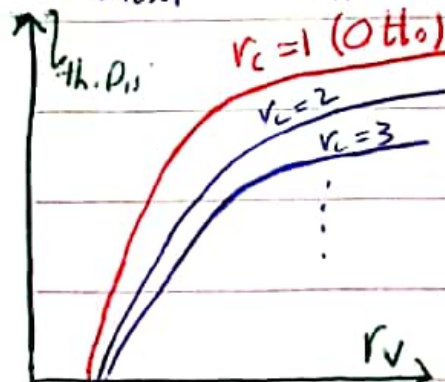 η th. Dis
r_c = 1 (Otto)
r_c = 2
r_c = 3
r_v